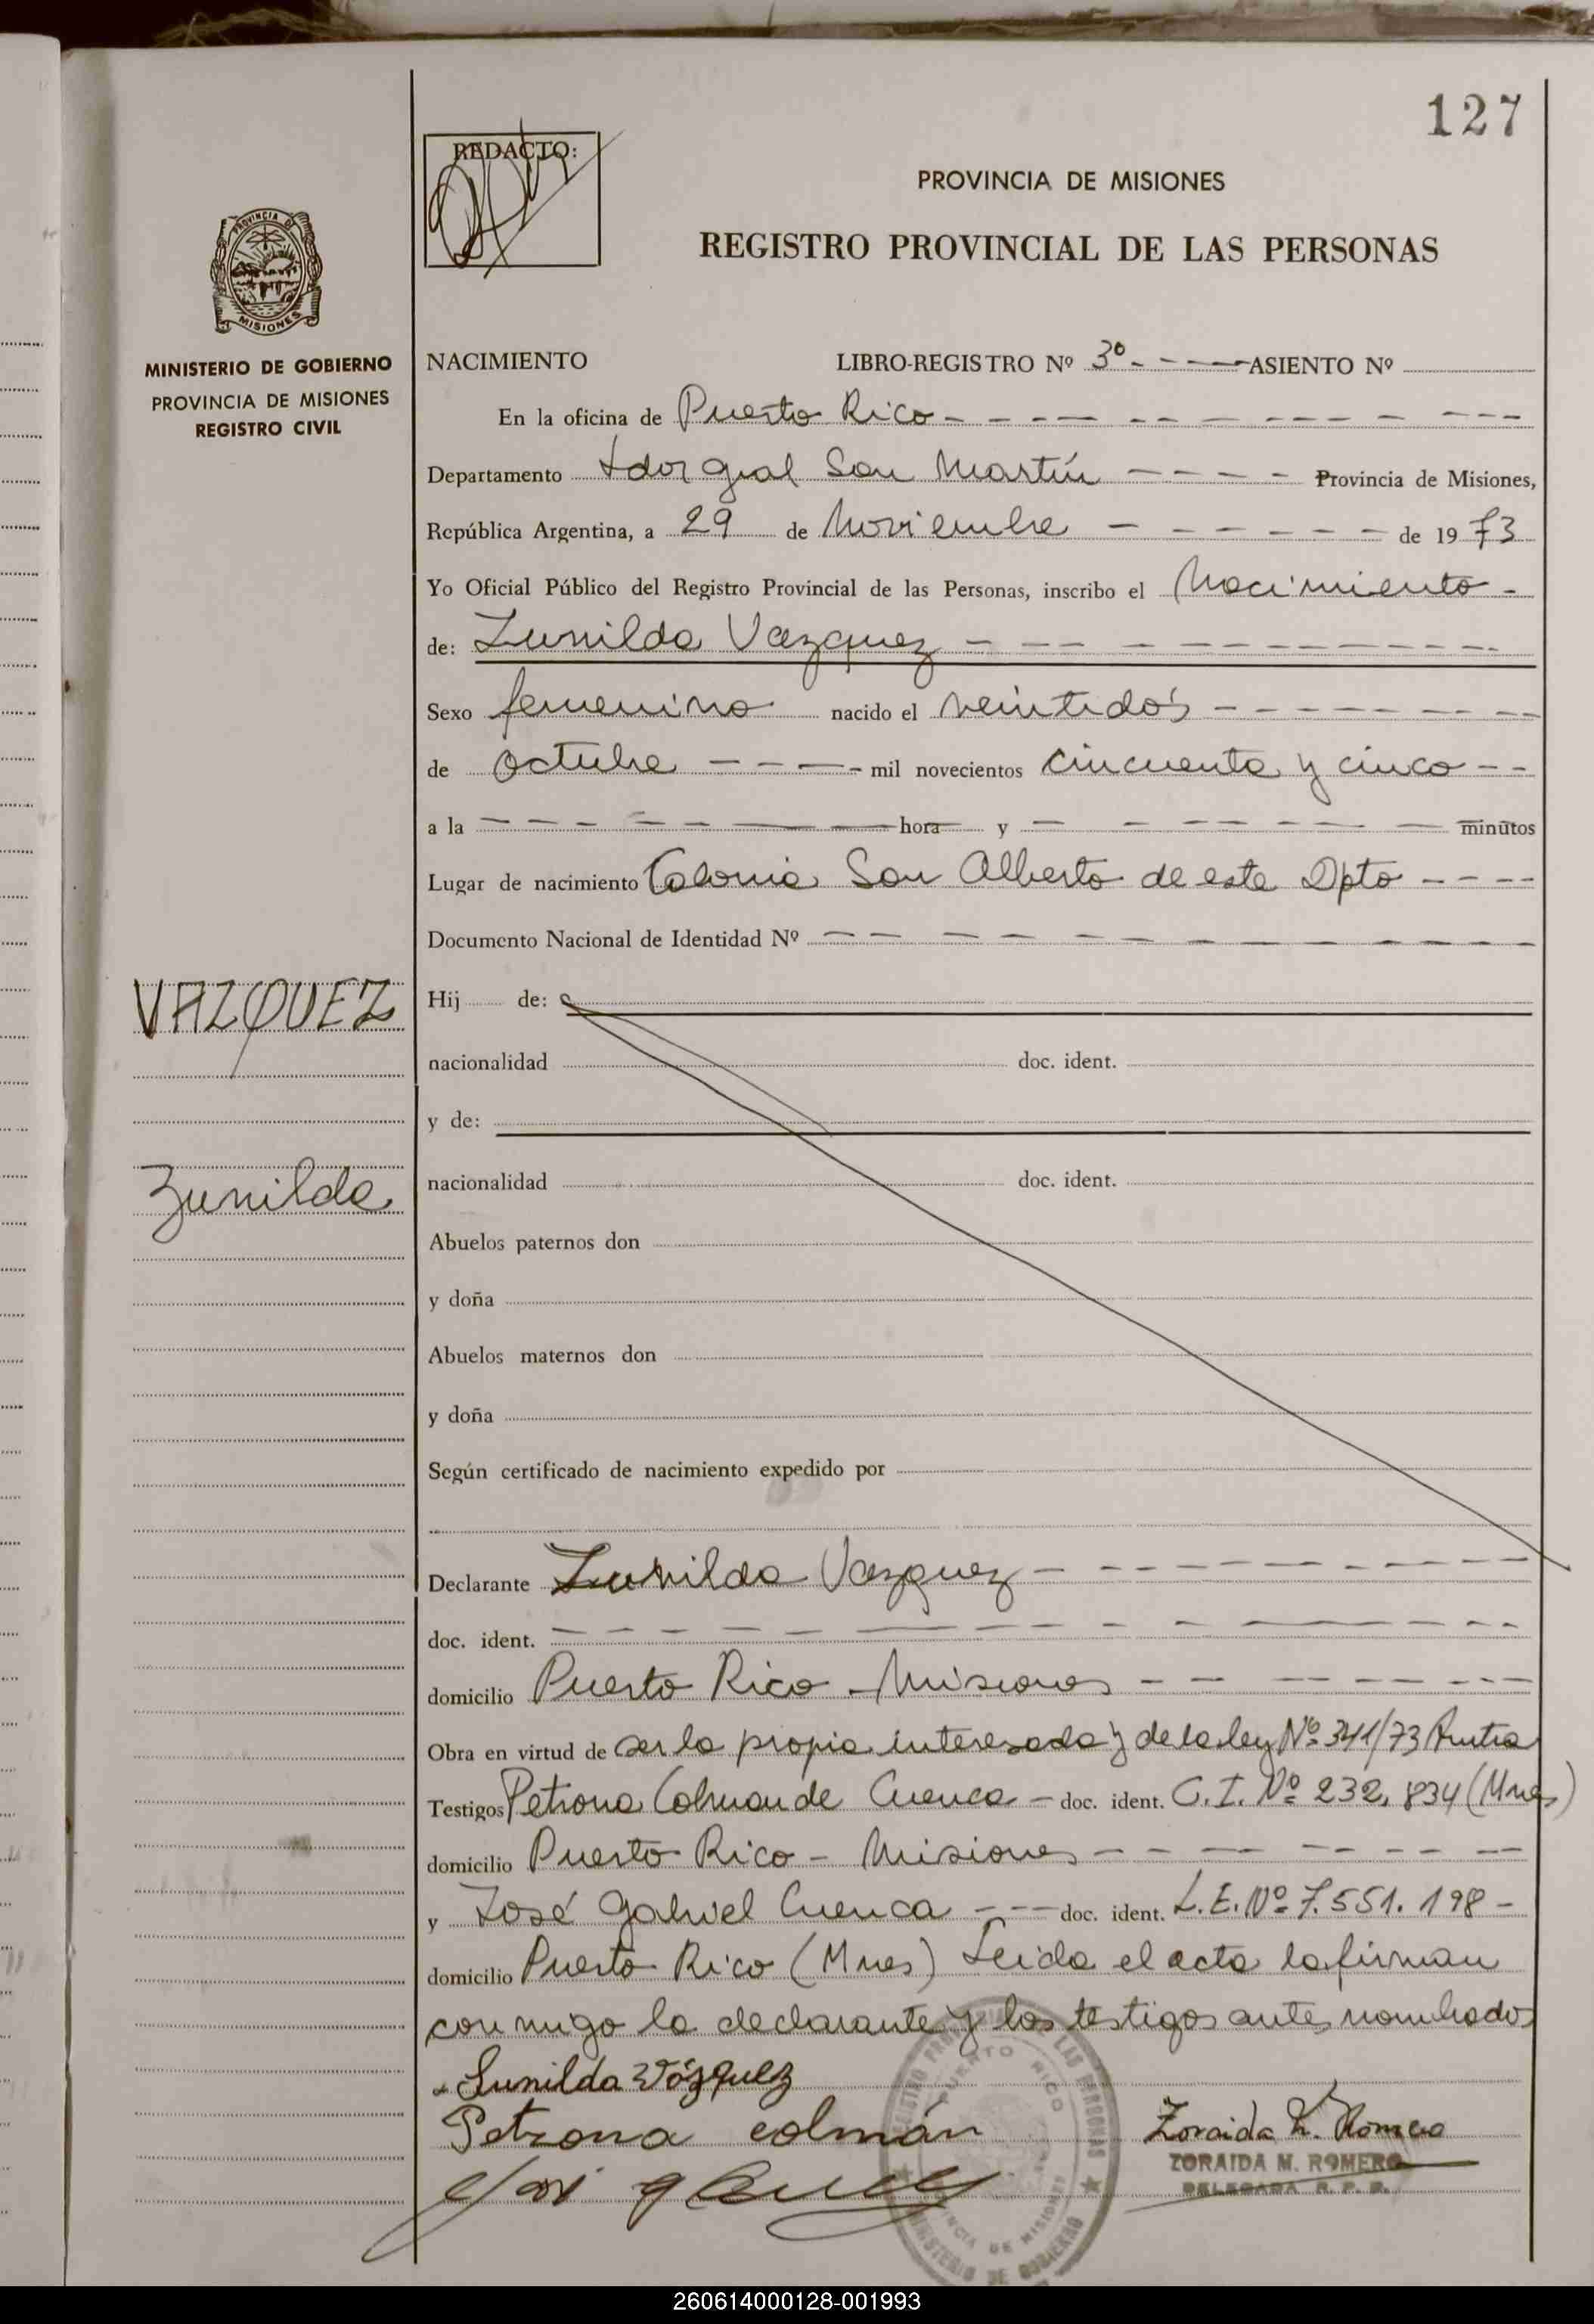 127
REDACTO:
PROVINCIA DE MISIONES
REGISTRO PROVINCIAL DE LAS PERSONAS
PROVINCIA DE MISIONES
MINISTERIO DE GOBIERNO
PROVINCIA DE MISIONES
REGISTRO CIVIL
NACIMIENTO LIBRO-REGISTRO Nº 3º - - - - ASIENTO Nº
En la oficina de Puerto Rico - - - - - - - - - - -
Departamento Ldor Gral San Martín - - - - - Provincia de Misiones,
República Argentina, a 29 de Noviembre - - - - - - - de 1973
Yo Oficial Público del Registro Provincial de las Personas, inscribo el Nacimiento -
de: Zunilda Vazquez - - - - - - - - - - -
Sexo femenino nacido el veintidós - - - - - - - -
de octubre - - - - - mil novecientos cincuenta y cinco - -
a la - - - - - - - - hora y - - - - - - - minutos
Lugar de nacimiento Colonia San Alberto de este Dpto - - - -
Documento Nacional de Identidad Nº - - - - - - - - - - - -
VAZQUEZ
Hij de:
nacionalidad doc. ident.
y de:
Zunilda
nacionalidad doc. ident.
Abuelos paternos don
y doña
Abuelos maternos don
y doña
Según certificado de nacimiento expedido por
Declarante Zunilda Vazquez - - - - - - - - -
doc. ident. - - - - - - - - - - - - - -
domicilio Puerto Rico - Misiones - - - - - - -
Obra en virtud de ser la propia interesada y de la ley Nº 341/73
Testigos Petrona Colman de Cuenca - doc. ident. C.I. Nº 232.834 (Mnes)
domicilio Puerto Rico - Misiones - - - - - - - -
y José Gabriel Cuenca - - - doc. ident. L.E. Nº 7.551.198 -
domicilio Puerto Rico (Mnes) Leida el acta la firman
conmigo la declarante y los testigos antes nombrados
Zunilda Vázquez
Petrona colmán
Zoraida M. Romero
ZORAIDA M. ROMERO
DELEGADA R. P. P.
REGISTRO PROVINCIAL DE LAS PERSONAS
PUERTO RICO
PROVINCIA DE MISIONES
MINISTERIO DE GOBIERNO
260614000128-001993